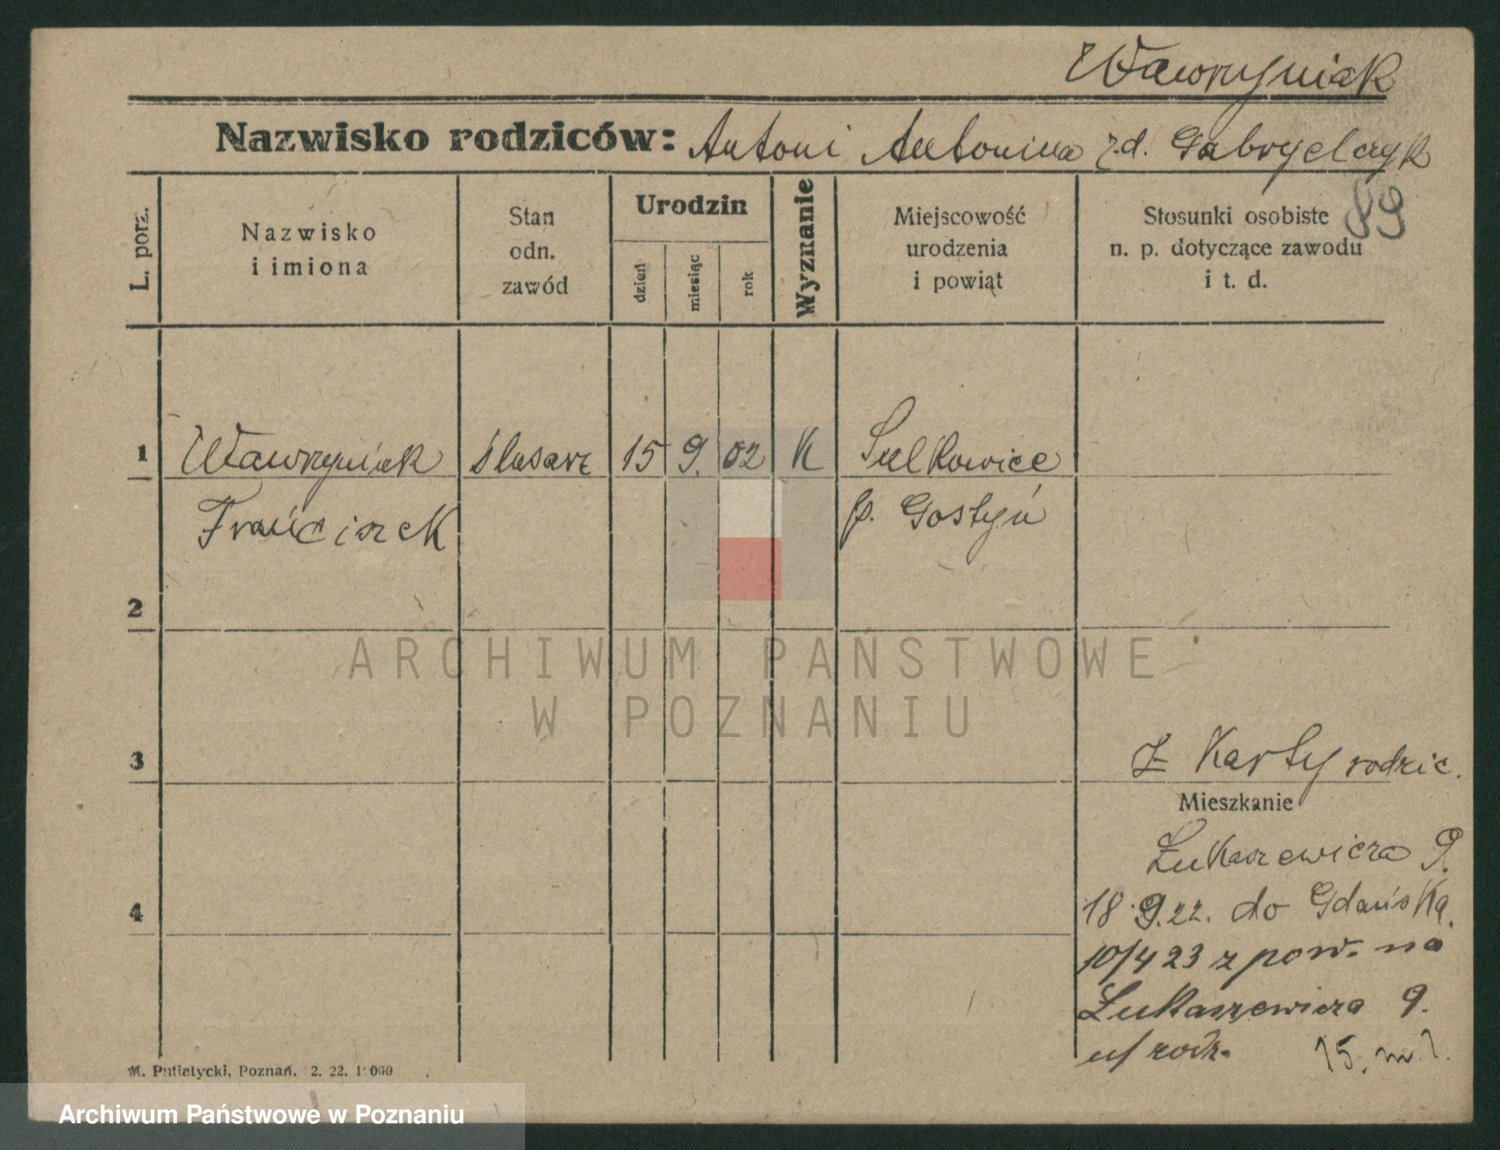 Wawrzyniak
Nazwisko rodziców: Antoni Antonina z.d. Gabryelczyk
89
L. porz.
Nazwisko
i imiona
Stan
odn.
zawód
Urodzin
dzień
miesiąc
rok
Wyznanie
Miejscowość
urodzenia
i powiąt
Stosunki osobiste
n. p. dotyczące zawodu
i t. d.
1 Wawrzyniak ślusarz 15 9. 02 K Sulkowice
Franciszek p. Gostyń
2
ARCHIWUM PAŃSTWOWE
W POZNANIU
3
Z Karty rodzic.
Mieszkanie
Łukaszewicza 9.
4
18.9.22. do Gdańska.
10/4 23 z pow. na
Łukaszewicza 9.
u/ rodz.
15. m.
M. Putiatycki, Poznań. 2. 22. 1000
Archiwum Państwowe w Poznaniu